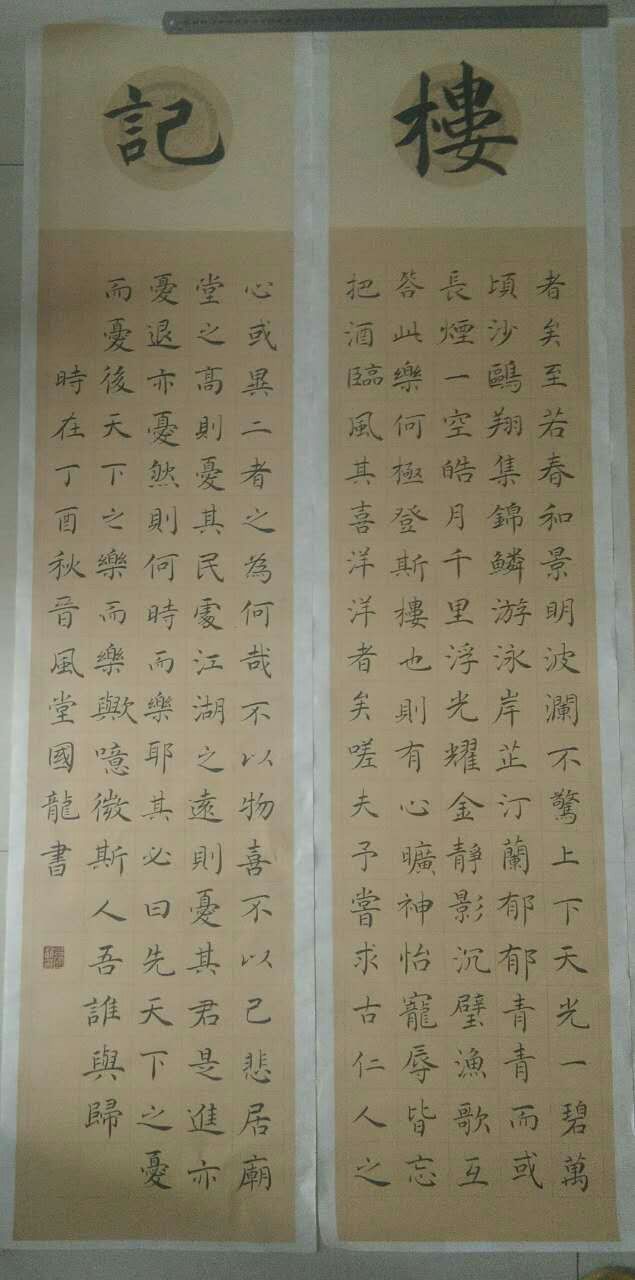 樓
者矣至若春和景明波瀾不驚上下天光一碧萬
頃沙鷗翔集錦鱗游泳岸芷汀蘭郁郁青青而或
長煙一空皓月千里浮光耀金靜影沉璧漁歌互
答此樂何極登斯樓也則有心曠神怡寵辱皆忘
把酒臨風其喜洋洋者矣嗟夫予嘗求古仁人之
記
心或異二者之為何哉不以物喜不以己悲居廟
堂之高則憂其民處江湖之遠則憂其君是進亦
憂退亦憂然則何時而樂耶其必曰先天下之憂
而憂後天下之樂而樂歟噫微斯人吾誰與歸
時在丁酉秋晉風堂國龍書